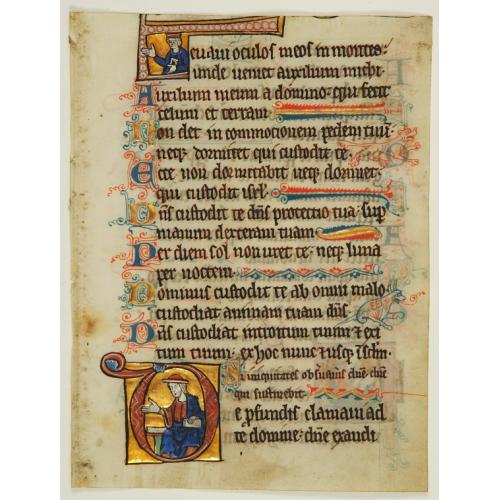 Leuaui oculos meos in montes:
unde ueniet auxilium michi.
Auxilium meum a domino: qui fecit
celum et terram.
Non det in commotionem pedem tuũ:
neq; dormitet qui custodit te.
Ecce non dormitabit neq; dormiet:
qui custodit isrl.
Dñs custodit te dñs protectio tua: sup
manum dexteram tuam.
Per diem sol non uret te: neq; luna
per noctem.
Dominus custodit te ab omni malo:
custodiat animam tuam dñs.
Dñs custodiat introitum tuum ⁊ exi
tum tuum: ex hoc nunc ⁊ usq; ĩ sclm.
Si iniquitates obseruaueris dñe: dñe
quis sustinebit.
De profundis clamaui ad
te domine: dñe exaudi